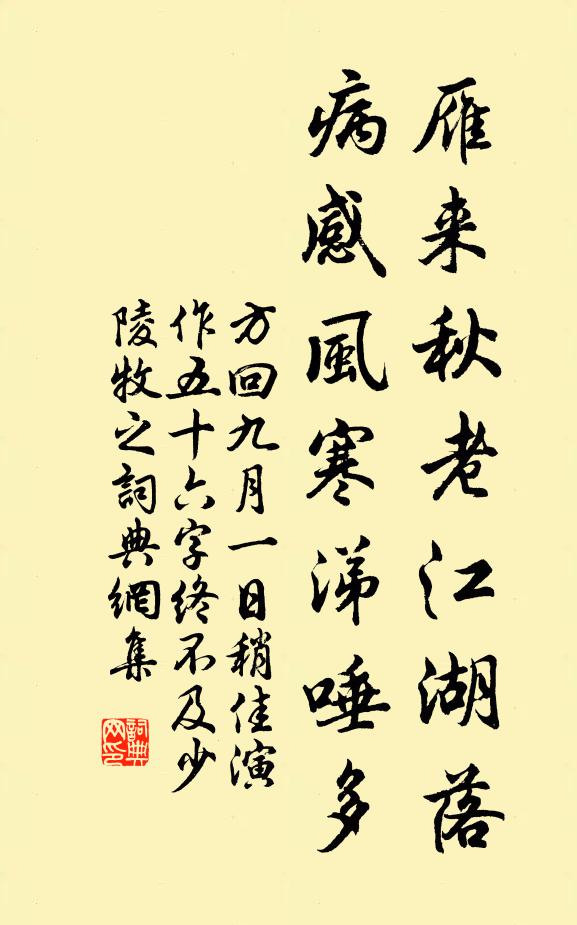 雁来秋老江湖落
病感風寒涕唾多
方回九月一日稍佳演
作五十六字终不及少
陵牧之詞典網集
詞典
网印